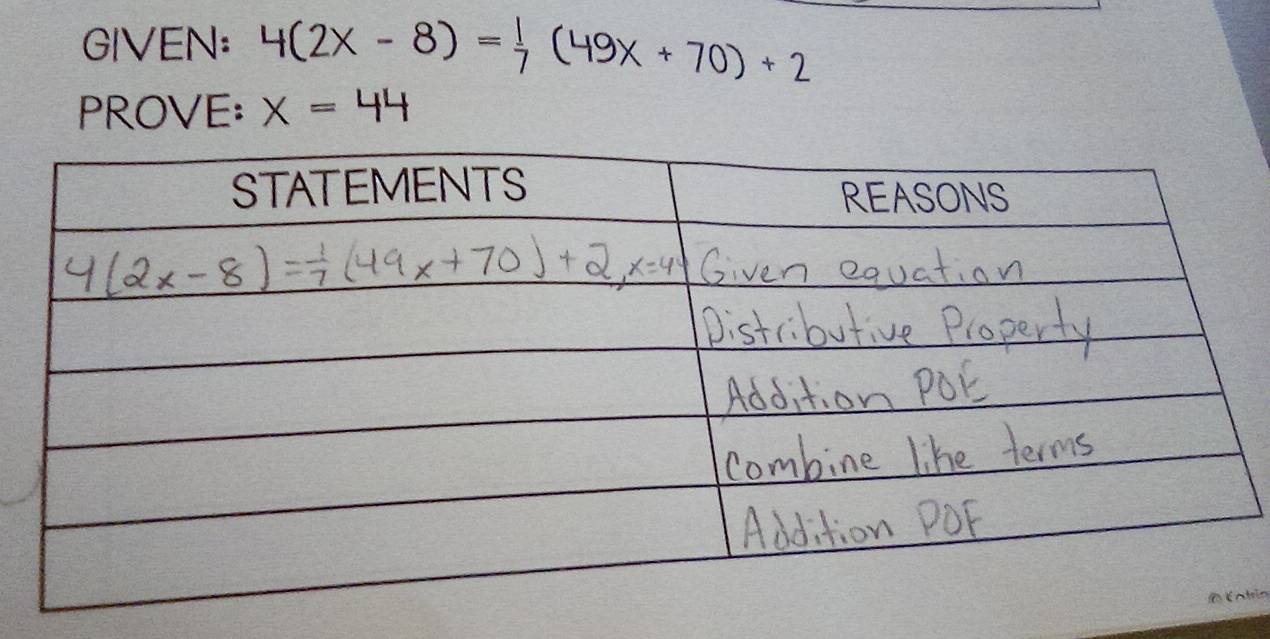 GIVEN: 4(2X - 8) = 1/7 (49X + 70) + 2
PROVE: X = 44
STATEMENTS REASONS
4(2x-8)=1/7(49x+70)+2,x=44 Given equation
Distributive Property
Addition POE
Combine like terms
Addition POE